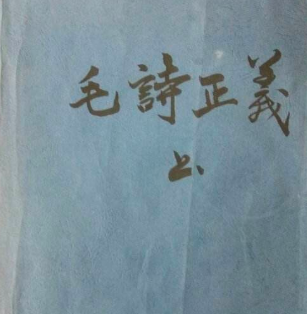 毛詩正義
上